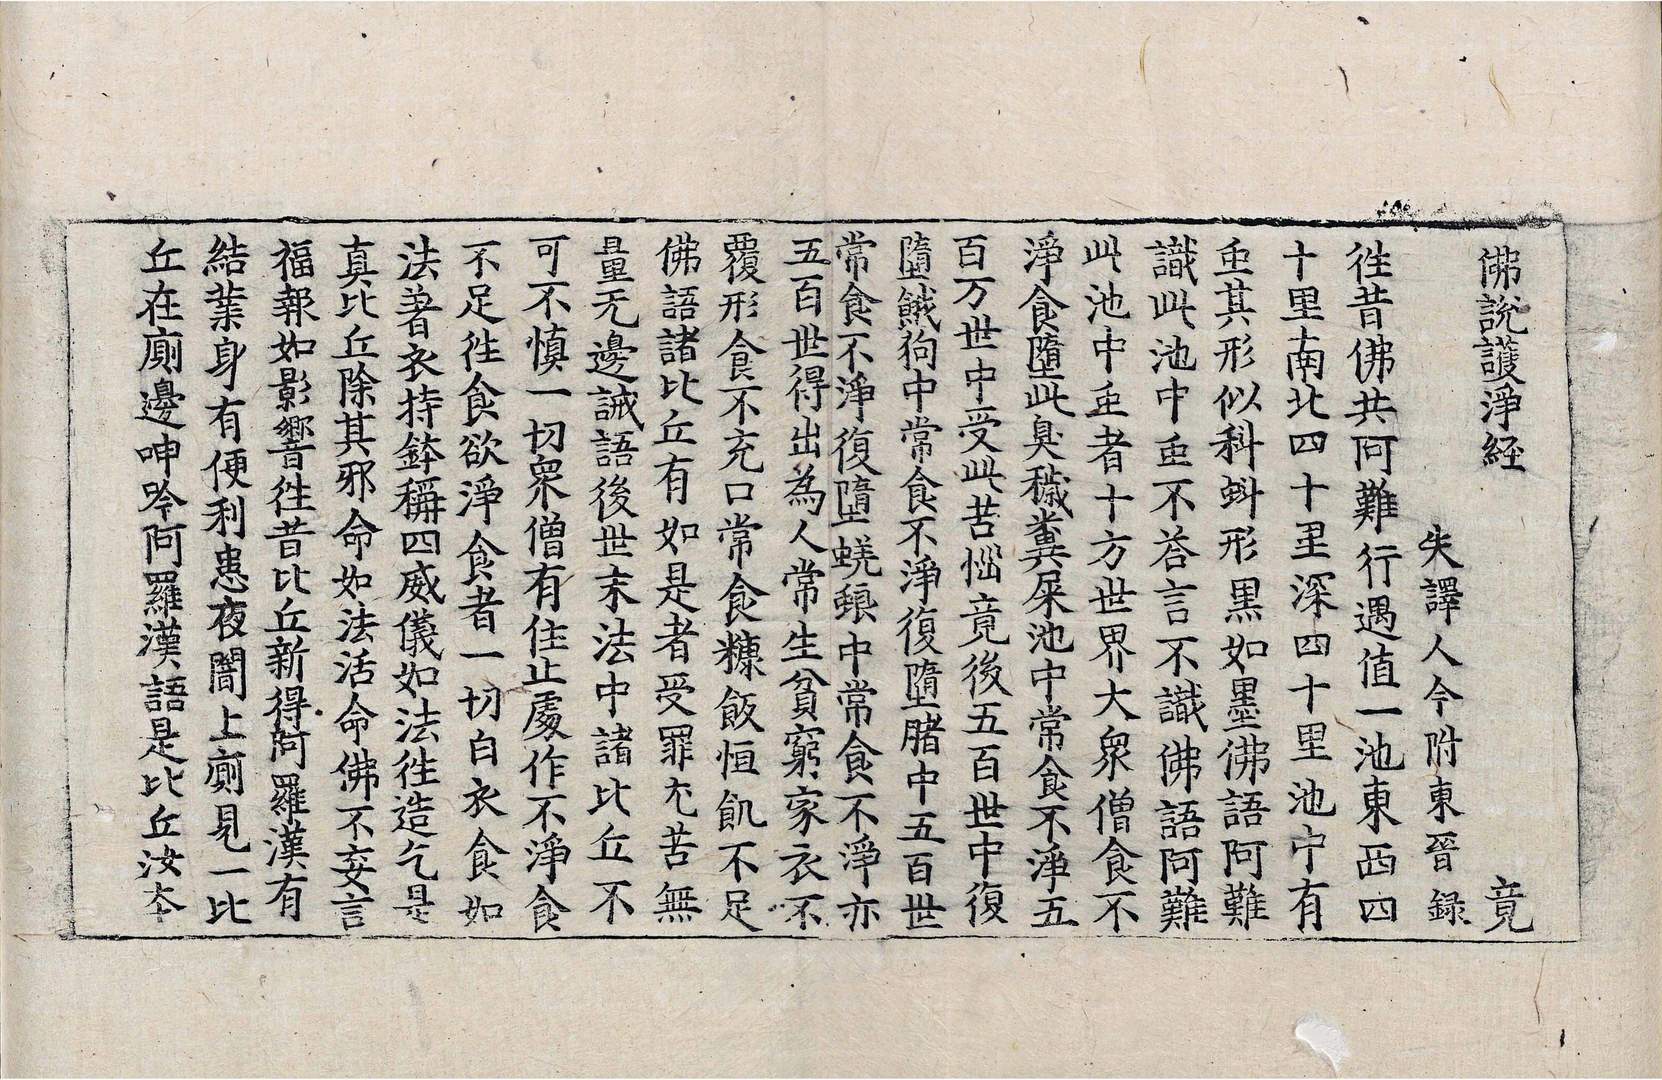 佛說護淨経 竟
失譯人今附東晉録
徃昔佛共阿難行遇值一池東西四
十里南北四十里深四十里池中有
䖝其形似科蚪形黒如墨佛語阿難
識此池中䖝不荅言不識佛語阿難
此池中䖝者十方世界大衆僧食不
淨食墮此臭穢糞屎池中常食不淨五
百万世中受此苦惱竟後五百世中復
墮餓狗中常食不淨復墮䐗中五百世
常食不淨復墮蜣蜋中常食不淨亦
五百世得出為人常生貧窮家衣不
覆形食不充口常食糠飯恒飢不足
佛語諸比丘有如是者受罪尤苦無
量无邊誡語後世末法中諸比丘不
可不慎一切衆僧有住止處作不淨食
不足徃食欲淨食者一切白衣食如
法著衣持鉢稱四威儀如法徃造乞是
真比丘除其邪命如法活命佛不妄言
福報如影響徃昔比丘新得阿羅漢有
結業身有便利患夜闇上廁見一比
丘在廁邊呻吟阿羅漢語是比丘汝本